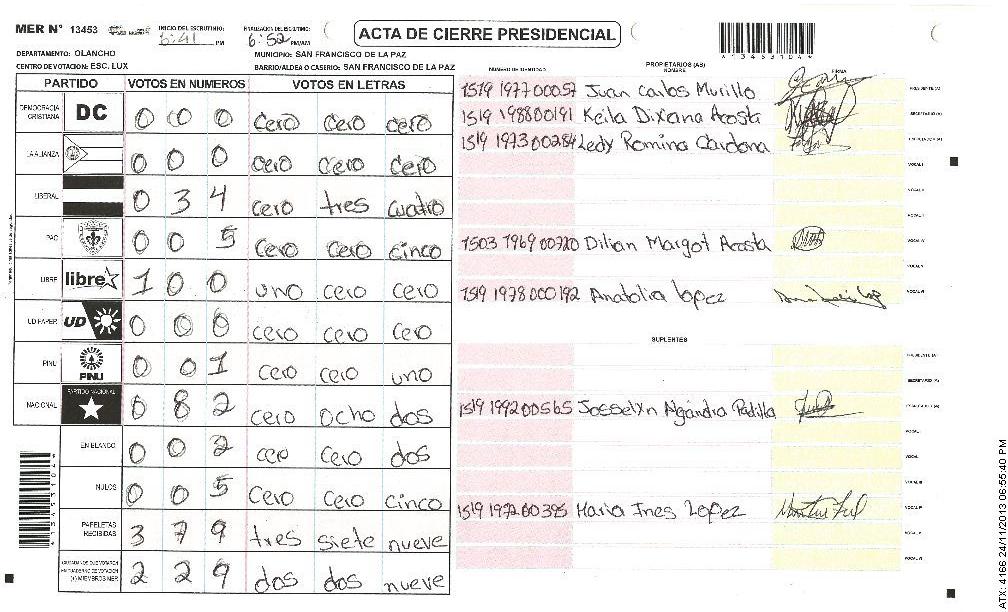 MER N° 13453 INICIO DEL ESCRUTINIO: 6:41 PM FINALIZACION DEL ESCUTINIO: 6:52 PM/AM
ACTA DE CIERRE PRESIDENCIAL
DEPARTAMENTO: OLANCHO MUNICIPIO: SAN FRANCISCO DE LA PAZ
CENTRO DE VOTACION: ESC. LUX BARRIO/ALDEA O CASERIO: SAN FRANCISCO DE LA PAZ
PARTIDO VOTOS EN NUMEROS VOTOS EN LETRAS
DEMOCRACIA CRISTIANA DC 0 0 0 cero cero cero
LA ALIANZA 0 0 0 cero cero cero
LIBERAL 0 3 4 cero tres cuatro
PAC 0 0 5 cero cero cinco
LIBRE libre 1 0 0 uno cero cero
UD FAPER UD 0 0 0 cero cero cero
PINU PINU 0 0 1 cero cero uno
NACIONAL PARTIDO NACIONAL 0 8 2 cero ocho dos
EN BLANCO 0 0 2 cero cero dos
NULOS 0 0 5 cero cero cinco
PAPELETAS RECIBIDAS 3 7 9 tres siete nueve
CIUDADANOS QUE VOTARON EN CUADERNO DE VOTACION (+) MIEMBROS MER 2 2 9 dos dos nueve
*13453104*
NUMERO DE IDENTIDAD PROPIETARIOS (AS) NOMBRE FIRMA
1519 1977 00057 Juan Carlos Murillo PRESIDENTE (A)
1519 1988 00191 Keila Dixana Acosta SECRETARIO (A)
1519 1973 00284 Ledy Romina Cardona
VOCAL I
VOCAL II
1503 1969 00720 Dilian Margot Acosta VOCAL IV
1519 1978 000192 Anatolia Lopez VOCAL VI
SUPLENTES
PRESIDENTE (A)
SECRETARIO (A)
1519 1992 00565 Josselyn Alejandra Padilla ESCRUTADOR (A)
1519 1972 00395 Maria Ines Lopez VOCAL IV
VOCAL V
VOCAL VI
*13453104*
ATX: 4166 24/11/2013 06:55:40 PM